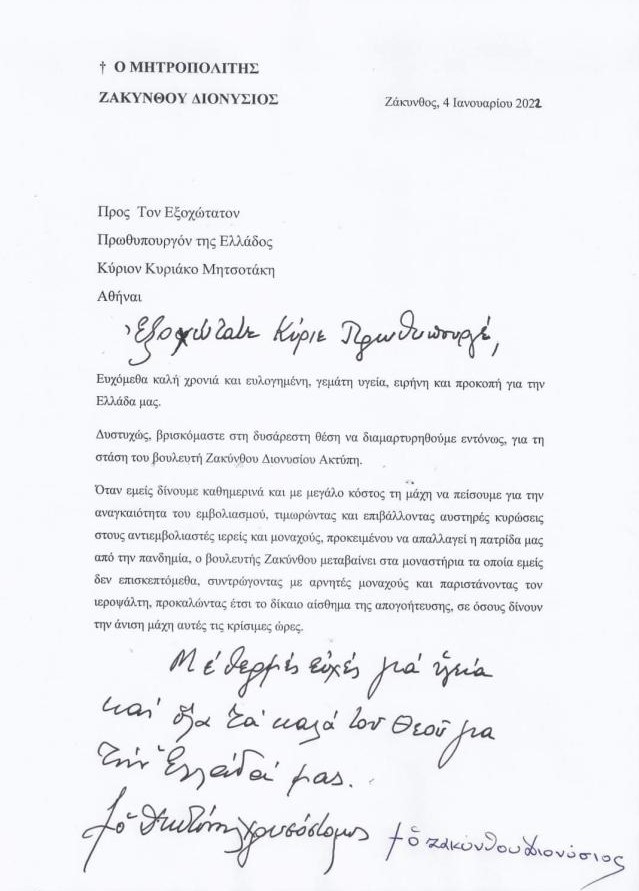 † Ο ΜΗΤΡΟΠΟΛΙΤΗΣ
ΖΑΚΥΝΘΟΥ ΔΙΟΝΥΣΙΟΣ
Ζάκυνθος, 4 Ιανουαρίου 2022
Προς Τον Εξοχώτατον
Πρωθυπουργόν της Ελλάδος
Κύριον Κυριάκο Μητσοτάκη
Αθήναι
Ἐξοχώτατε Κύριε Πρωθυπουργέ,
Ευχόμεθα καλή χρονιά και ευλογημένη, γεμάτη υγεία, ειρήνη και προκοπή για την
Ελλάδα μας.
Δυστυχώς, βρισκόμαστε στη δυσάρεστη θέση να διαμαρτυρηθούμε εντόνως, για τη
στάση του βουλευτή Ζακύνθου Διονυσίου Ακτύπη.
Όταν εμείς δίνουμε καθημερινά και με μεγάλο κόστος τη μάχη να πείσουμε για την
αναγκαιότητα του εμβολιασμού, τιμωρώντας και επιβάλλοντας αυστηρές κυρώσεις
στους αντιεμβολιαστές ιερείς και μοναχούς, προκειμένου να απαλλαγεί η πατρίδα μας
από την πανδημία, ο βουλευτής Ζακύνθου μεταβαίνει στα μοναστήρια τα οποία εμείς
δεν επισκεπτόμεθα, συντρώγοντας με αρνητές μοναχούς και παριστάνοντας τον
ιεροψάλτη, προκαλώντας έτσι το δίκαιο αίσθημα της απογοήτευσης, σε όσους δίνουν
την άνιση μάχη αυτές τις κρίσιμες ώρες.
Μέ θερμές εὐχές γιά ὑγεία
καί ὅλα τά καλά τοῦ Θεοῦ για
τήν Ἑλλάδά μας.
† ὁ Χρυσόστομος † ὁ Ζακύνθου Διονύσιος